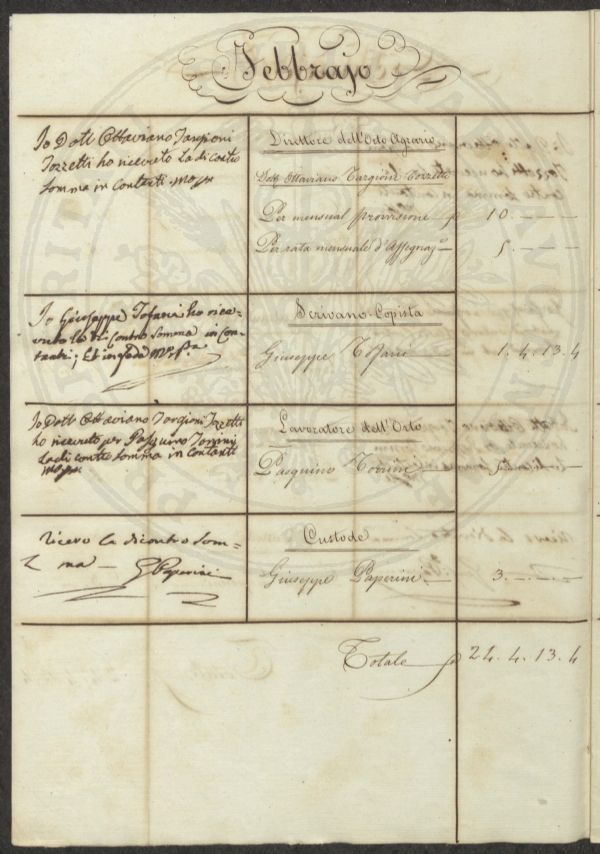 Febbrajo
Io Dott Ottaviano Targioni
Tozzetti ho ricevuto la di contro
somma in Contanti M.o pp.a
Direttore dell'Orto Agrario
Dott. Ottaviano Targioni Tozzetti
Per mensual provisione 10. - - -
Per rata mensuale d'Assegnaz.ne 5. - - -
Io Giuseppe Tofani ho rice=
vuto la di contro somma in Con=
tanti; Et in fede M.o P.a
Scrivano-Copista
Giuseppe Tofani 1. 4. 13. 4
Io Dott Ottaviano Targioni Tozzetti
ho ricevuto per Pasquino
la di contro somma in Contanti
M.o pp.a
Lavoratore dell'Orto
Pasquino 5. - - -
ricevo la dicontro som=
ma — G Paperini
Custode
Giuseppe Paperini 3. - - -
Totale 24. 4. 13. 4